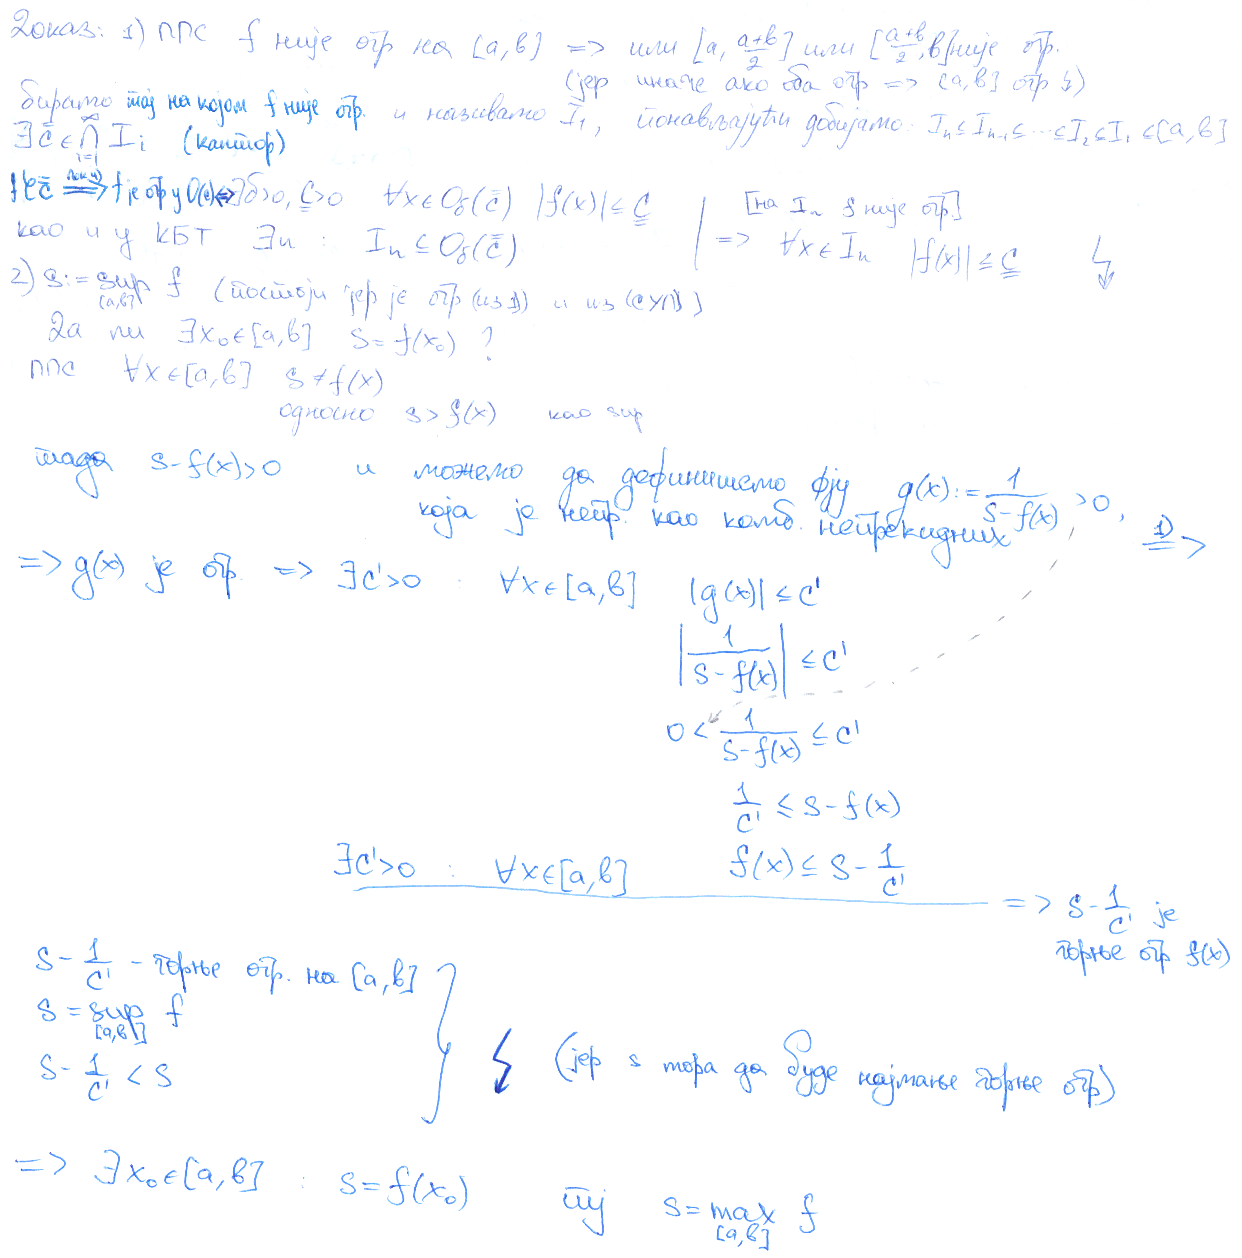 Доказ: 1) ППС f није огр на [a,b] => или [a, (a+b)/2] или [(a+b)/2, b] није огр.
(јер иначе ако оба огр => [a,b] огр ↯)
бирамо тај на којом f није огр. и називамо I₁, понављајући добијамо: Iₙ ⊆ Iₙ₋₁ ⊆ ... ⊆ I₂ ⊆ I₁ ⊆ [a,b]
∃c̄ ∈ ⋂_{i=1}^{∞} I_i (кантор)
=> f је огр у O(c̄) <=> ∃δ>0, C>0 ∀x∈O_δ(c̄) |f(x)| ≤ C
[на Iₙ f није огр.]
као и у КБТ ∃n : Iₙ ⊆ O_δ(c̄)
=> ∀x∈Iₙ |f(x)| ≤ C ↯
2) s := sup_{[a,b]} f (постоји јер је огр (из 1)) и из (СУП))
Да ли ∃x₀∈[a,b] s = f(x₀) ?
ППС ∀x∈[a,b] s ≠ f(x)
односно s > f(x) као sup
тада s - f(x) > 0 и можемо да дефинишемо фју g(x) := 1/(s-f(x)) > 0,
која је непр. као комб. непрекидних 1) =>
=> g(x) је огр. => ∃C'>0 : ∀x∈[a,b] |g(x)| ≤ C'
|1/(s-f(x))| ≤ C'
0 < 1/(s-f(x)) ≤ C'
1/C' ≤ s - f(x)
∃C'>0 : ∀x∈[a,b] f(x) ≤ s - 1/C'
=> s - 1/C' је
горње огр f(x)
s - 1/C' - горње огр. на [a,b]
s = sup_{[a,b]} f
s - 1/C' < s
↯ (јер s мора да буде најмање горње огр)
=> ∃x₀∈[a,b] : s = f(x₀) тј s = max_{[a,b]} f